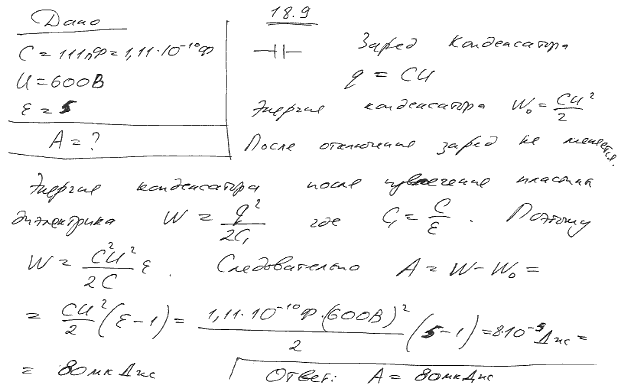 18.9
Дано
C = 111пФ = 1,11·10⁻¹⁰Ф
U = 600В
ε = 5
A = ?
Заряд конденсатора
q = CU
Энергия конденсатора W₀ = CU²/2
После отключения заряд не меняется.
Энергия конденсатора после извлечения пластин
диэлектрика W = q²/2C₁ где C₁ = C/ε. Поэтому
W = C²U²/2C ε. Следовательно A = W − W₀ =
= CU²/2 (ε−1) = 1,11·10⁻¹⁰Ф·(600В)²/2 (5−1) = 8·10⁻⁵Дж =
= 80мкДж
Ответ: A = 80мкДж